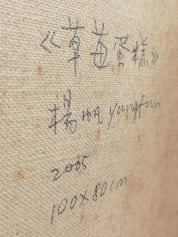 《草莓蛋糕》
楊帆 yangfan
2005
100×80cm